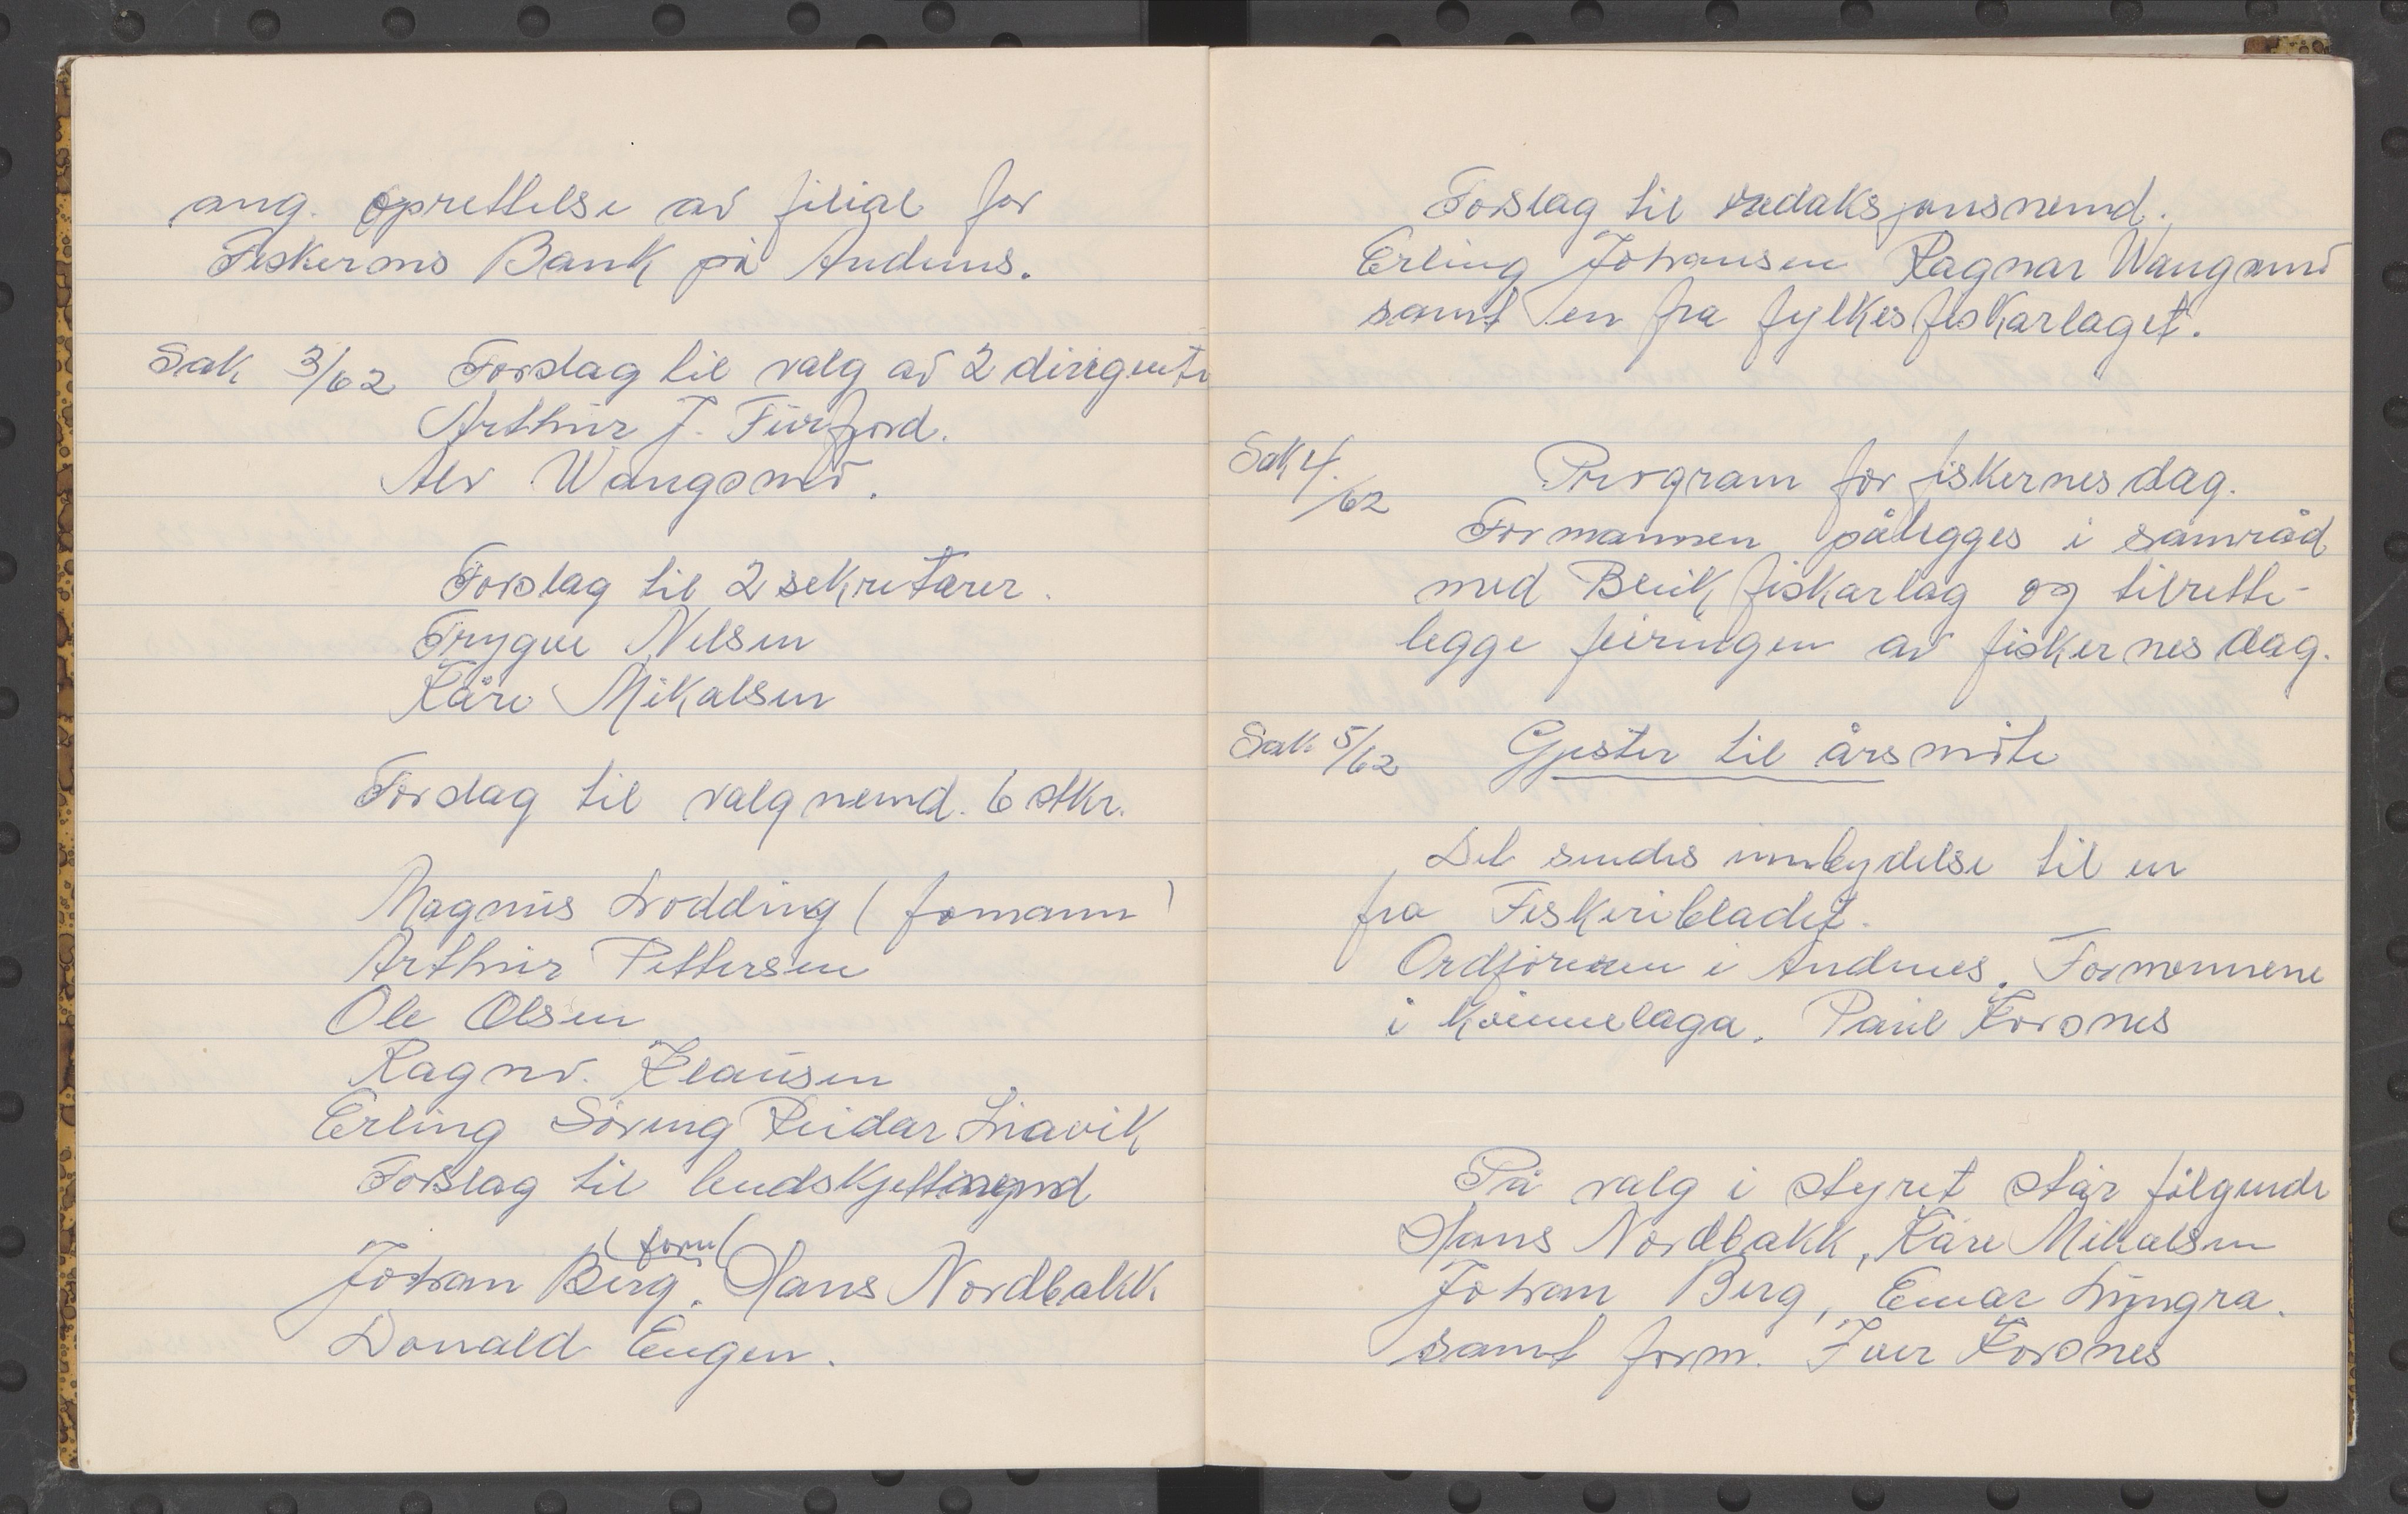 ang. oprettelse av filial for
Fiskernes Bank på Andenes.
Sak 3/62 Forslag til valg av 2 dirigente
Arthur J. Furfjord.
Alv Wangsmo.
Forslag til 2 sekretærer.
Trygve Nilsen
Kåre Mikalsen
Forslag til valgnemd. 6 stkr.
Magnus Lodding (formann)
Arthur Pettersen
Ole Olsen
Ragnv. Klausen
Erling Søring Reidar Liavik
Forslag til budskjettnemd
(form)
Johan Berg. Hans Nordbakk
Donald Eugen.
Forslag til redaksjonsnemd.
Erling Johansen Ragnar Wangsmo
samt en fra fylkesfiskarlaget.
Sak 4.
/62 Program for fiskernes dag.
Formannen pålegges i samråd
med Bleik fiskarlag og tilrette-
legge feiringen av fiskernes dag.
Sak 5/62 Gjester til årsmöte
Det sendes innbydelse til en
fra Fiskeribladet.
Ordföreren i Andenes. Formennene
i kvinnelaga. Paul Korsnes
På valg i styret står fölgende
Hans Nordbakk, Kåre Mikalsen
Johan Berg, Einar Lyngra.
samt form. Iver Korsnes